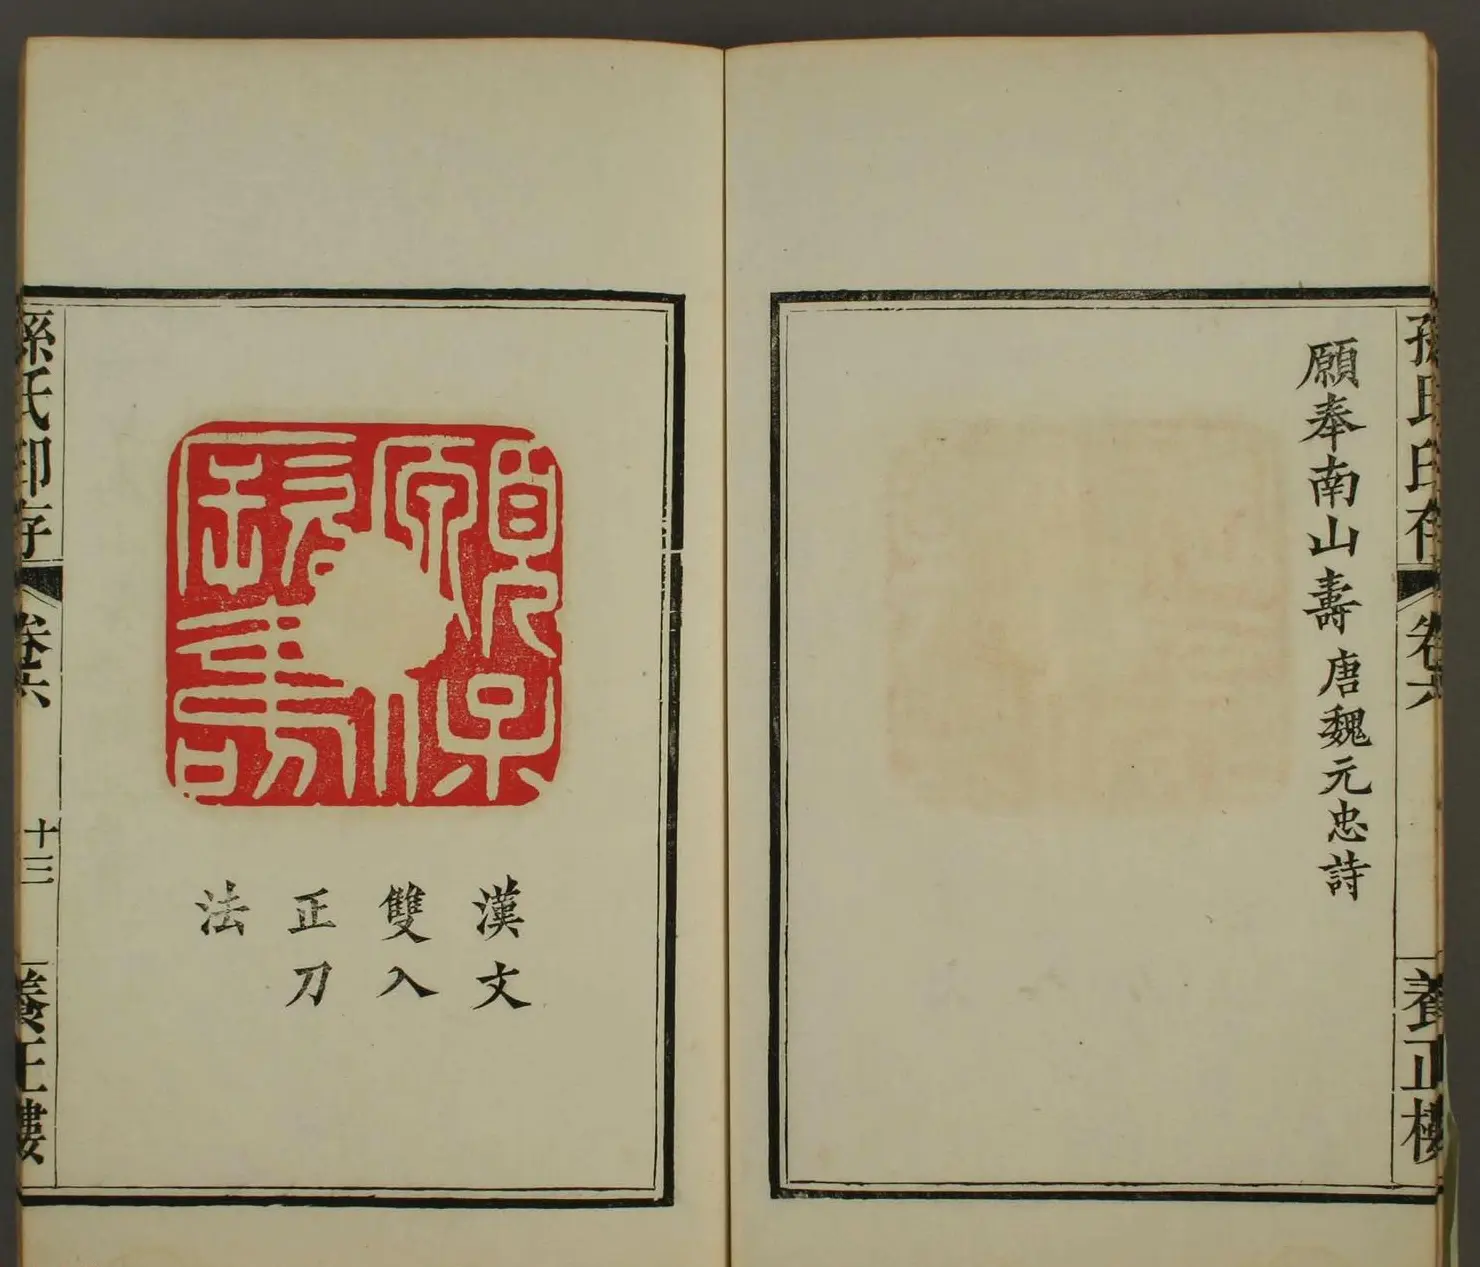 孫氏印存 卷六 養正樓
願奉南山壽 唐魏元忠詩
願保
壽
漢文
雙入
正刀
法
孫氏印存 卷六 十三 養正樓